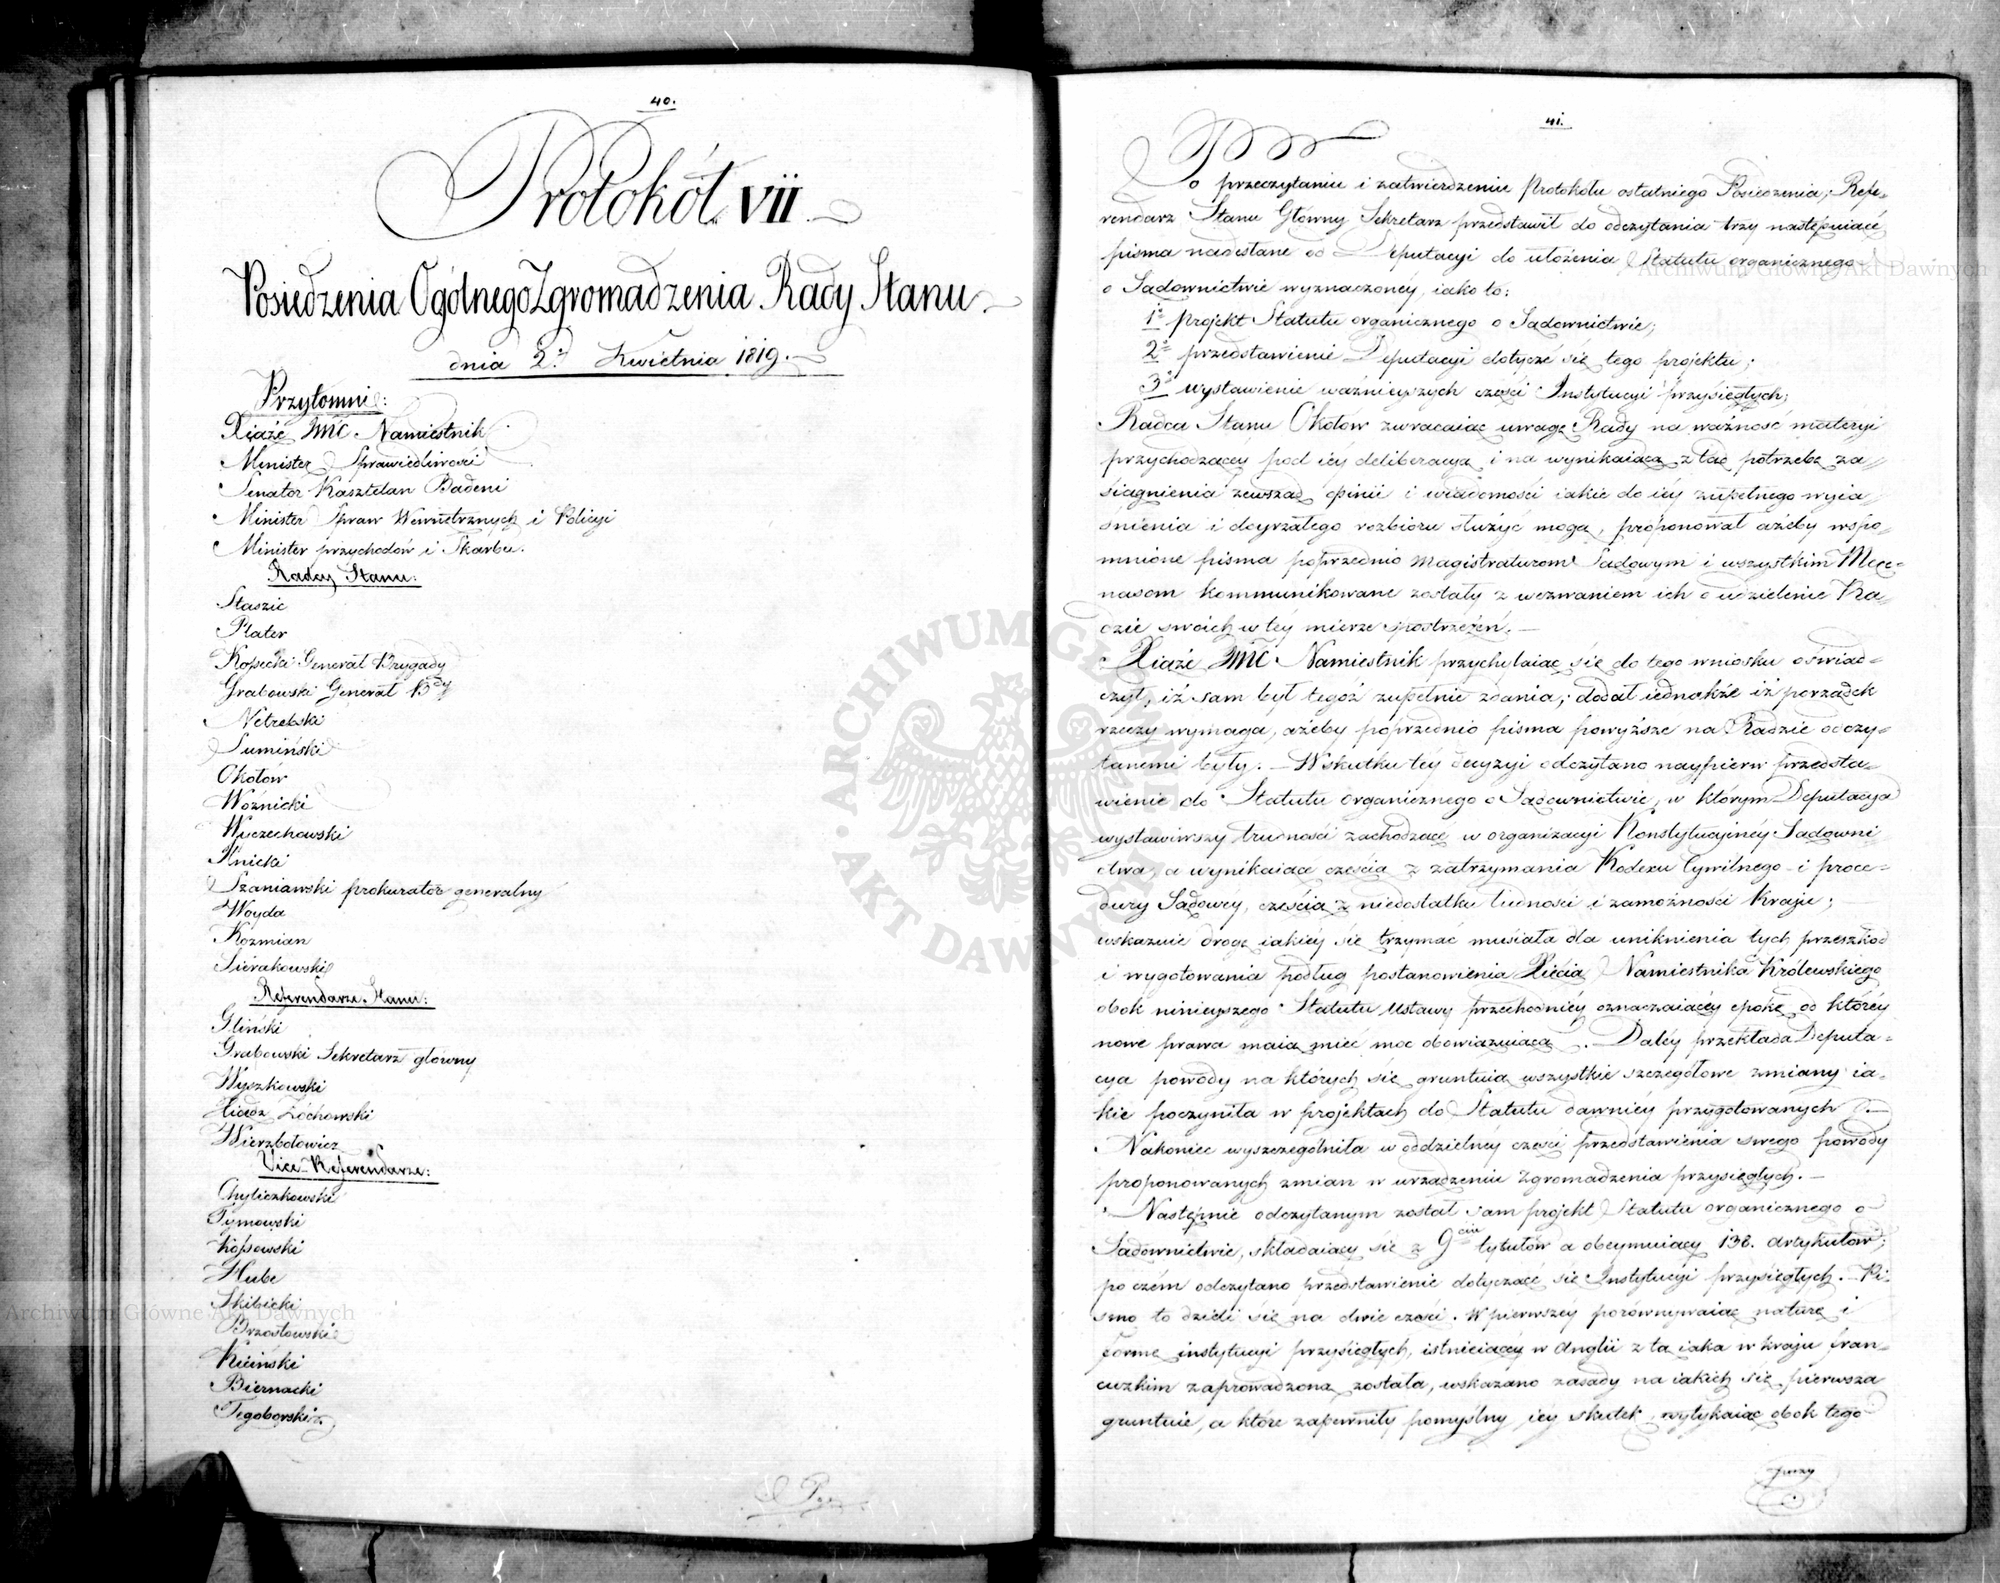 40.
Protokół VII
Posiedzenia Ogólnego Zgromadzenia Rady Stanu
dnia 2. Kwietnia 1819.
Przytomni:
Xiąże JMC Namiestnik
Minister Sprawiedliwości
Senator Kasztelan Badeni
Minister Spraw Wewnętrznych i Policyi
Minister przychodów i Skarbu.
Radcy Stanu:
Staszic
Plater
Kossecki Generał Brygady
Grabowski Generał Bdy
Netrebski
Sumiński
Okołów
Woźnicki
Wyczechowski
Knicki
Szaniawski prokurator generalny
Woyda
Kozmian
Sierakowski
Referendarze Stanu:
Gliński
Grabowski Sekretarz główny
Wyszkowski
Xiądz Zóchowski
Wierzbołowicz
Vice-Referendarze:
Chyliczkowski
Tymowski
Kossowski
Hube
Skibicki
Brzostowski
Kiciński
Biernacki
Tęgoborski
41.
Po przeczytaniu i zatwierdzeniu Protokołu ostatniego Posiedzenia, Refe-
rendarz Stanu Główny Sekretarz przedstawił do odczytania trzy następuiące
pisma nadesłane od Deputacyi do ułożenia Statutu organicznego
o Sądownictwie wyznaczoney, iako to:
1o projekt Statutu organicznego o Sądownictwie;
2o przedstawienie Deputacyi dotyczące się tego projektu;
3o wystawienie ważnieyszych części Instytucyi przysięgłych;
Radca Stanu Okołów zwracaiąc uwagę Rady na ważność materyi
przychodzącey pod iey deliberacyą i na wynikaiącą ztąd potrzebę za-
siągnienia zewsząd opinii i wiadomości iakie do iey zupełnego wyia
śnienia i doyrzałego rozbioru służyć mogą, proponował ażeby wspo-
mnione pisma poprzednio Magistraturom Sądowym i wszystkim Mece-
nasom kommunikowane zostały z wezwaniem ich o udzielenie Ra-
dzie swoich w tey mierze spostrzeżeń. —
Xiąże JMC Namiestnik przychylaiąc się do tego wniosku oświad-
czył, iż sam był tegoż zupełnie zdania; dodał iednakże iż porządek
rzeczy wymaga, ażeby poprzednio pisma powyższe na Radzie odczy-
tanemi były. — W skutku tey decyzyi odczytano naypierw przedsta-
wienie do Statutu organicznego o Sądownictwie, w którym Deputacya
wystawiwszy trudności zachodzące w organizacyi Konstytucyiney Sądowni
ctwa, a wynikaiące częścią z zatrzymania Kodexu Cywilnego i proce-
dury Sądowey, częścią z niedostatku ludności i zamożności Kraju;
wskazuie drogę iakiey się trzymać musiała dla uniknienia tych przeszkod
i wygotowania podług postanowienia Xięcia Namiestnika Królewskiego
obok ninieyszego Statutu Ustawy przechodniey oznaczaiącey epokę od którey
nowe prawa maią mieć moc obowiązuiącą. Daley przekłada Deputa-
cya powody na których się gruntuią wszystkie szczegółowe zmiany ia-
kie poczyniła w projektach do Statutu dawniey przygotowanych. —
Nakoniec wyszczególniła w oddzielney części przedstawienia swego powody
proponowanych zmian w urządzeniu Zgromadzenia przysięgłych. —
Następnie odczytanym został sam projekt Statutu organicznego o
Sądownictwie, składaiący się z 9ciu tytułów a obeymuiący 138. artykułów;
po czém odczytano przedstawienie dotyczące się Instytucyi przysięgłych. Pi-
smo to dzieli się na dwie części. W pierwszey porównywaiąc naturę i
formę instytucyi przysięgłych, istnieiącey w Anglii z tą iaka w kraju fran-
cuzkim zaprowadzona została, wskazano zasady na iakich się pierwsza
gruntuie, a które zapewniły pomyślny iey skutek, wytykaiąc obok tego
Archiwum Główne Akt Dawnych
Archiwum Główne Akt Dawnych
ARCHIWUM GŁÓWNE AKT DAWNYCH